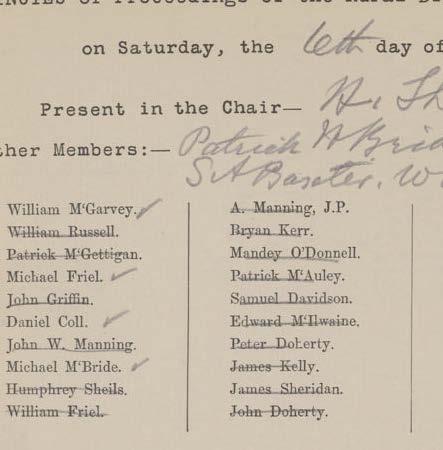 of Proceedings of the Rural
on Saturday, the 6th day of
Present in the Chair— H.
ther Members:— Patrick
S A Baxter. W
William M‘Garvey.
William Russell.
Patrick M‘Gettigan.
Michael Friel.
John Griffin.
Daniel Coll.
John W. Manning.
Michael M‘Bride.
Humphrey Sheils.
William Friel.
A. Manning, J.P.
Bryan Kerr.
Mandey O’Donnell.
Patrick M‘Auley.
Samuel Davidson.
Edward M‘Ilwaine.
Peter Doherty.
James Kelly.
James Sheridan.
John Doherty.